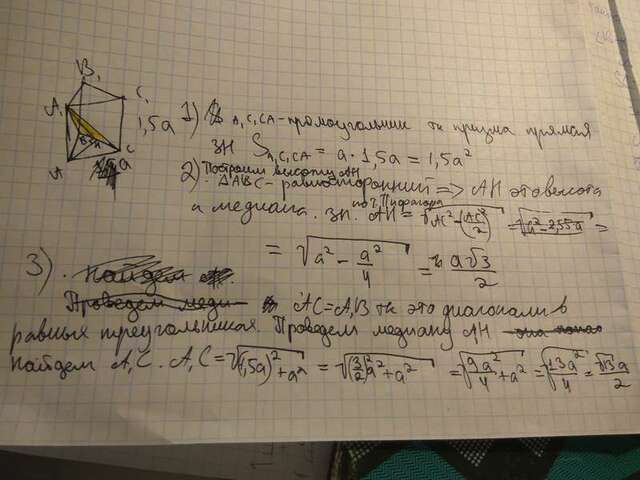 B₁
A₁
C₁
1,5a
B
H
A
C
a
1) A₁C₁CA - прямоугольник тк призма прямая
зн S A₁C₁CA = a · 1,5a = 1,5a²
2) Построим высоту AH
ΔABC - равносторонний => AH это высота
и медиана. зн. AH = по т. Пифагора √AC² - (AC/2)² =
= √a² - a²/4 = a√3/2
3). Найдем
Проведем меди A₁C = A₁B тк это диагонали в
равных преугольниках. Проведем медиану AH
найдем A₁C. A₁C = √(1,5a)² + a² = √(3/2)²a² + a² = √9a²/4 + a² = √13a²/4 = √13a/2